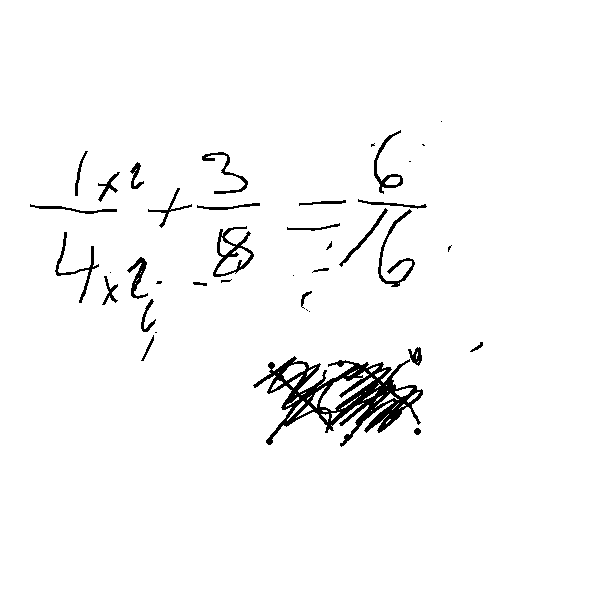 1x2/4x2 + 3/8 = 6/16